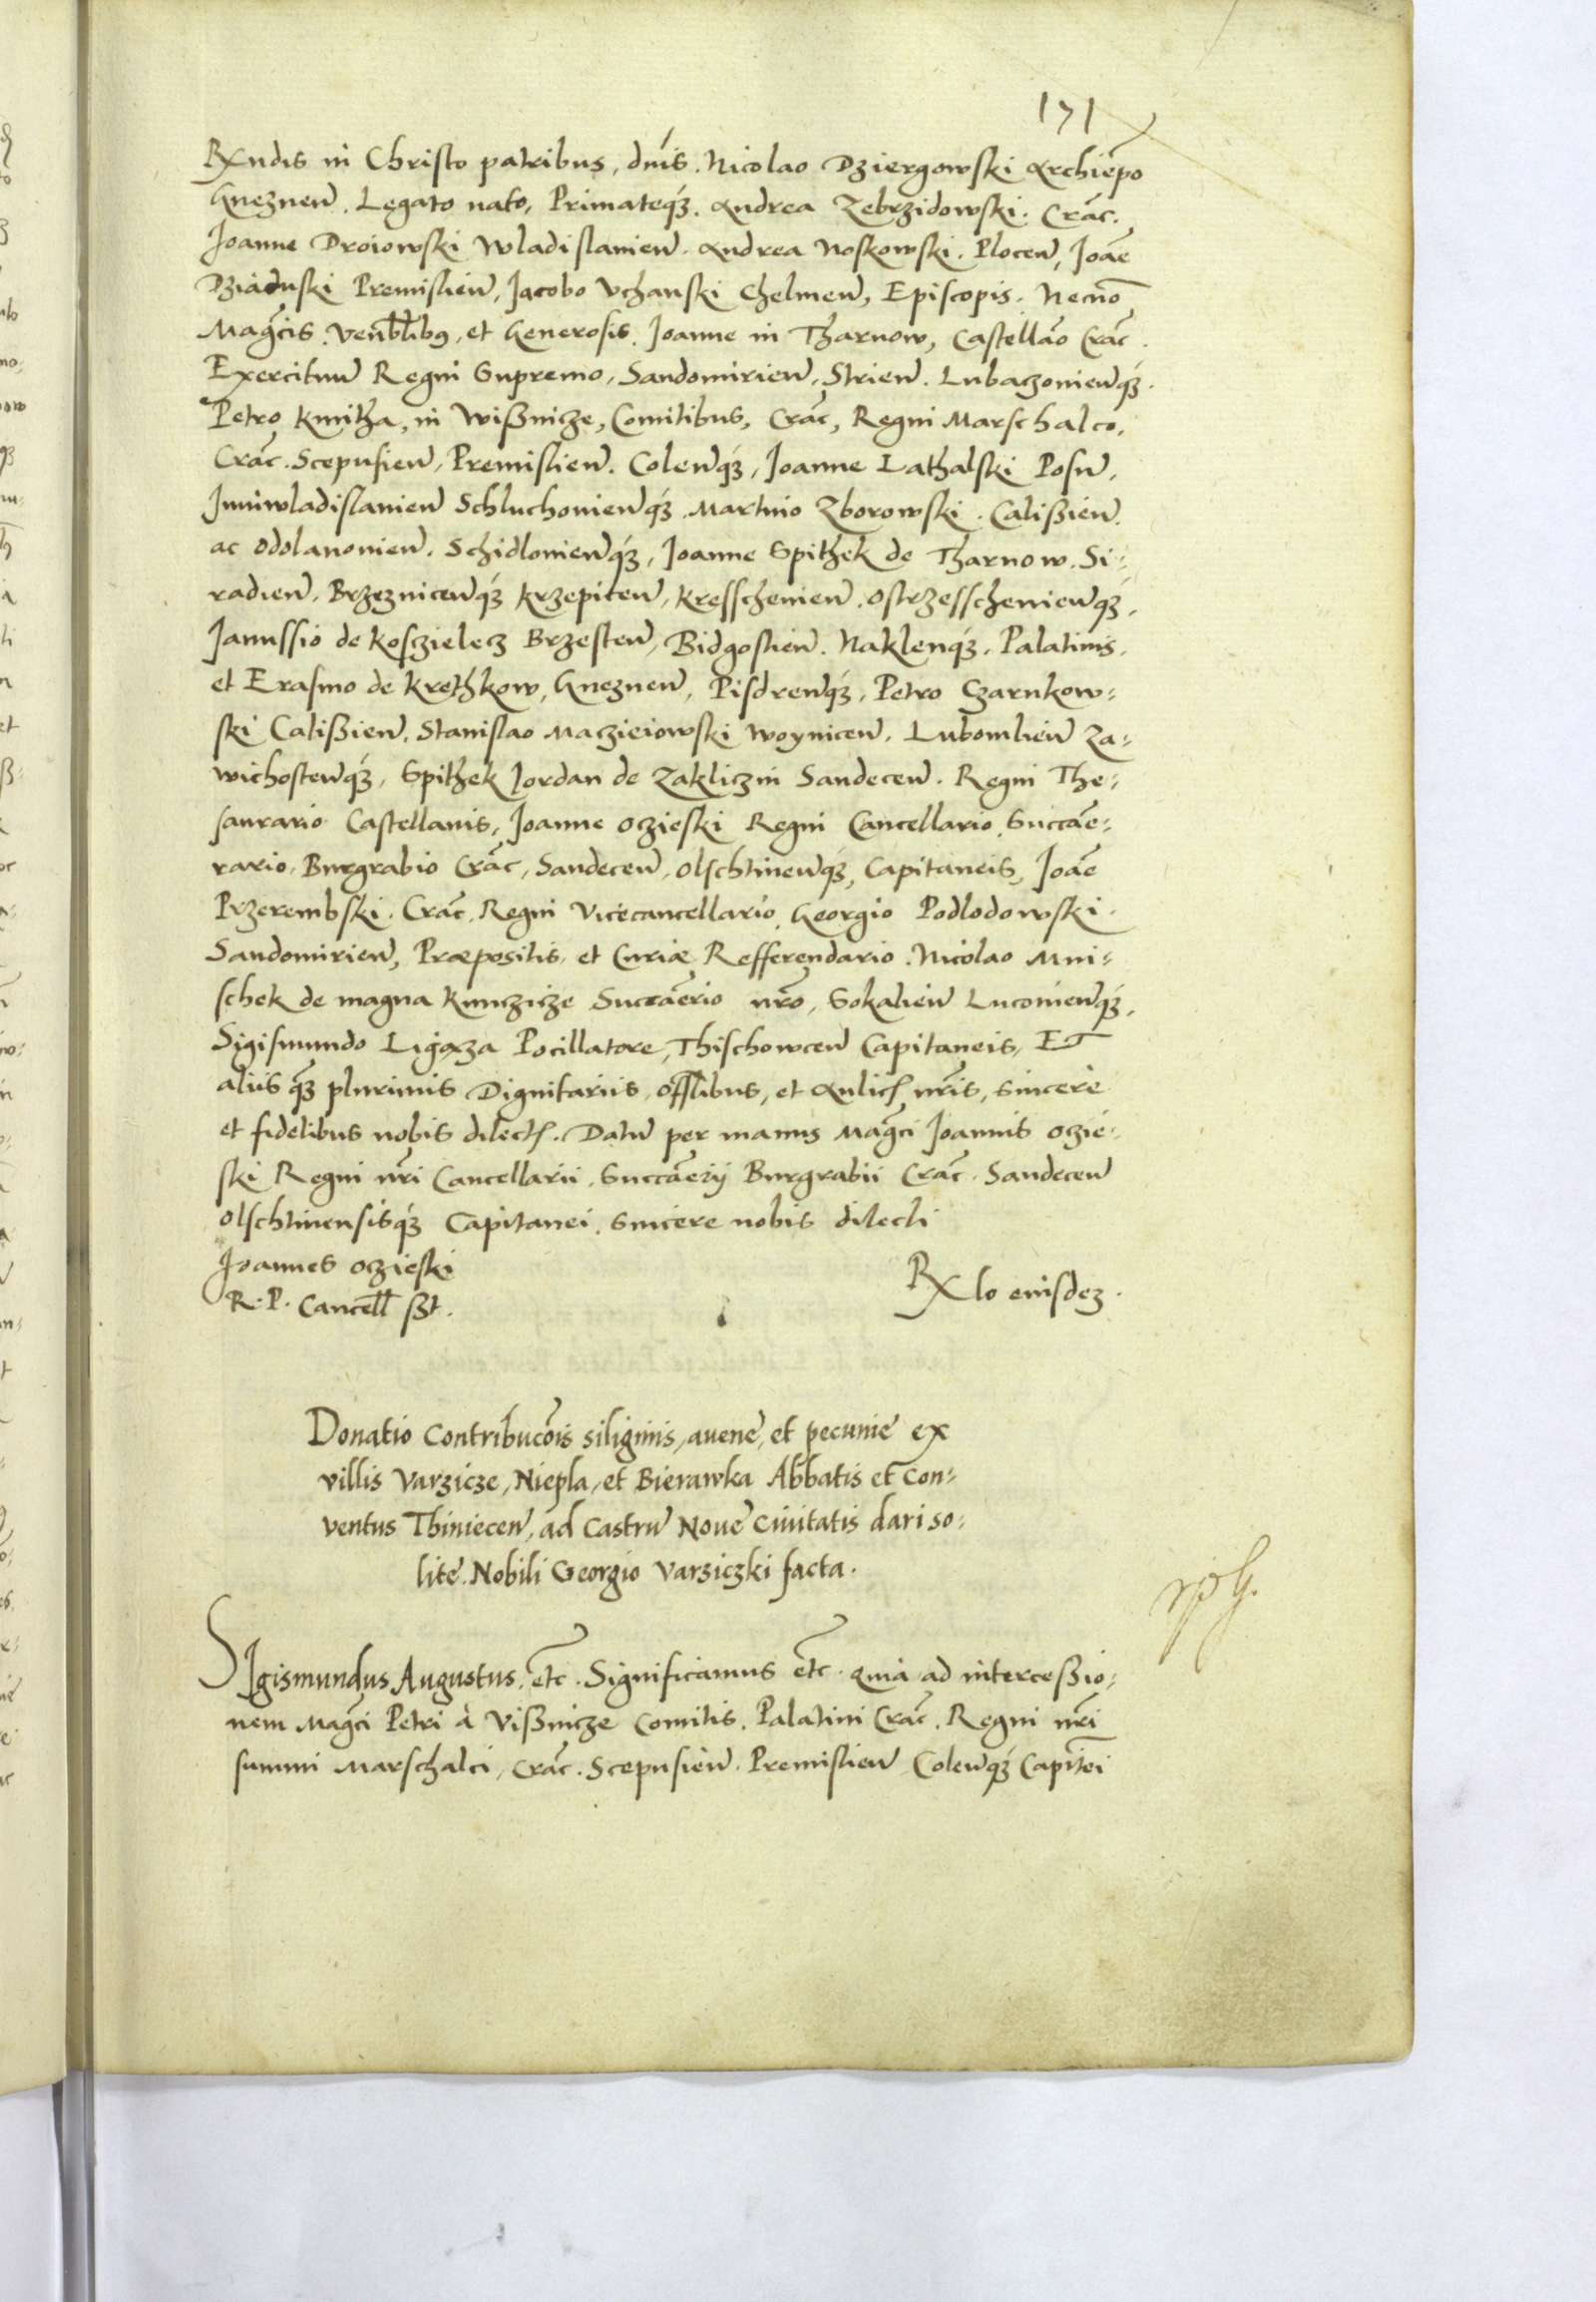 171
Rxndis in Christo patribus, dnis. Nicolao Dziergowski Archiepo
Gneznen. Legato nato, Primateq́z. Andrea Zebrzidowski. Crac.
Joanne Droiowski Wladislauien. Andrea Noskowski. Plocen, Joāe
Dziaduski Premislien, Jacobo Vchanski Chelmen, Episcopis. Necnō
Magcis. Venblibus, et Generosis. Joanne in Tharnow, Castellāo Crac.
Exercituum Regni Supremo, Sandomirien, Strien. Lubaczouienq́z.
Petro Kmitha, in Wißnicze, Comitibus, Crac, Regni Marschalco,
Crac. Scepusien, Premislien. Colenq́z, Joanne Lathalski Posn,
Juniwladislauien Schluchouienq́z. Martino Zborowski. Calißien.
ac Odolanouien. Schidlouienq́z, Joanne Spithek de Tharnow. Si-
radien. Brzeznicenq́z Krzepicen, Kresschenien. Ostrzesschenienq́z,
Janussio de Kosczielecz Brzesten, Bidgostien. Naklenq́z. Palatinis,
et Erasmo de Krethkow, Gneznen, Pisdrenq́z, Petro Czarnkow-
ski Calißien. Stanislao Maczieiowski Woynicen. Lubomlien Za-
wichostenq́z, Spithek Jordan de Zakliczin Sandecen. Regni The-
saurario Castellanis, Joanne Oczieski Regni Cancellario, Succāe-
rario, Burgrabio Crāc, Sandecen, Olschtinenq́z, Capitaneis, Joāe
Przerembski. Crāc. Regni Vicecancellario, Georgio Podlodowski.
Sandomirien, Præpositis, et Curiæ Refferendario. Nicolao Mni-
schek de magna Kunczicze Succāerio nrō, Sokalien Luconienq́z,
Sigismundo Ligęza Pocillatore, Thischowcen Capitaneis, ET
aliis q̄z plurimis Dignitariis, offlibus, et Aulicis nris, sincere
et fidelibus nobis dilectis. Datū per manus Magci Joannis Oczie-
ski Regni nri Cancellarii. Succāerij Burgrabii Crāc. Sandecen
Olschtinensisq́z Capitanei. Sincere nobis dilecti
Joannes Oczieski
R. P. Cancell sst.
Rxlo eiusdez.
Donatio contribucōis siliginis, auene, et pecunie ex
villis Varzicze, Niepla, et Bierawka Abbatis et con-
ventus Thiniecen, ad castrū Noue ciuitatis dari so-
lite. Nobili Georgio Varziczki facta.
SIgismundus Augustus, etc. Significamus etc. quia ad intercessio-
nem Magci Petri à Vißnicze Comitis. Palatini Crāc. Regni nri
summi Marschalci, Crāc. Scepusien. Premislien Colenq́z Capitei